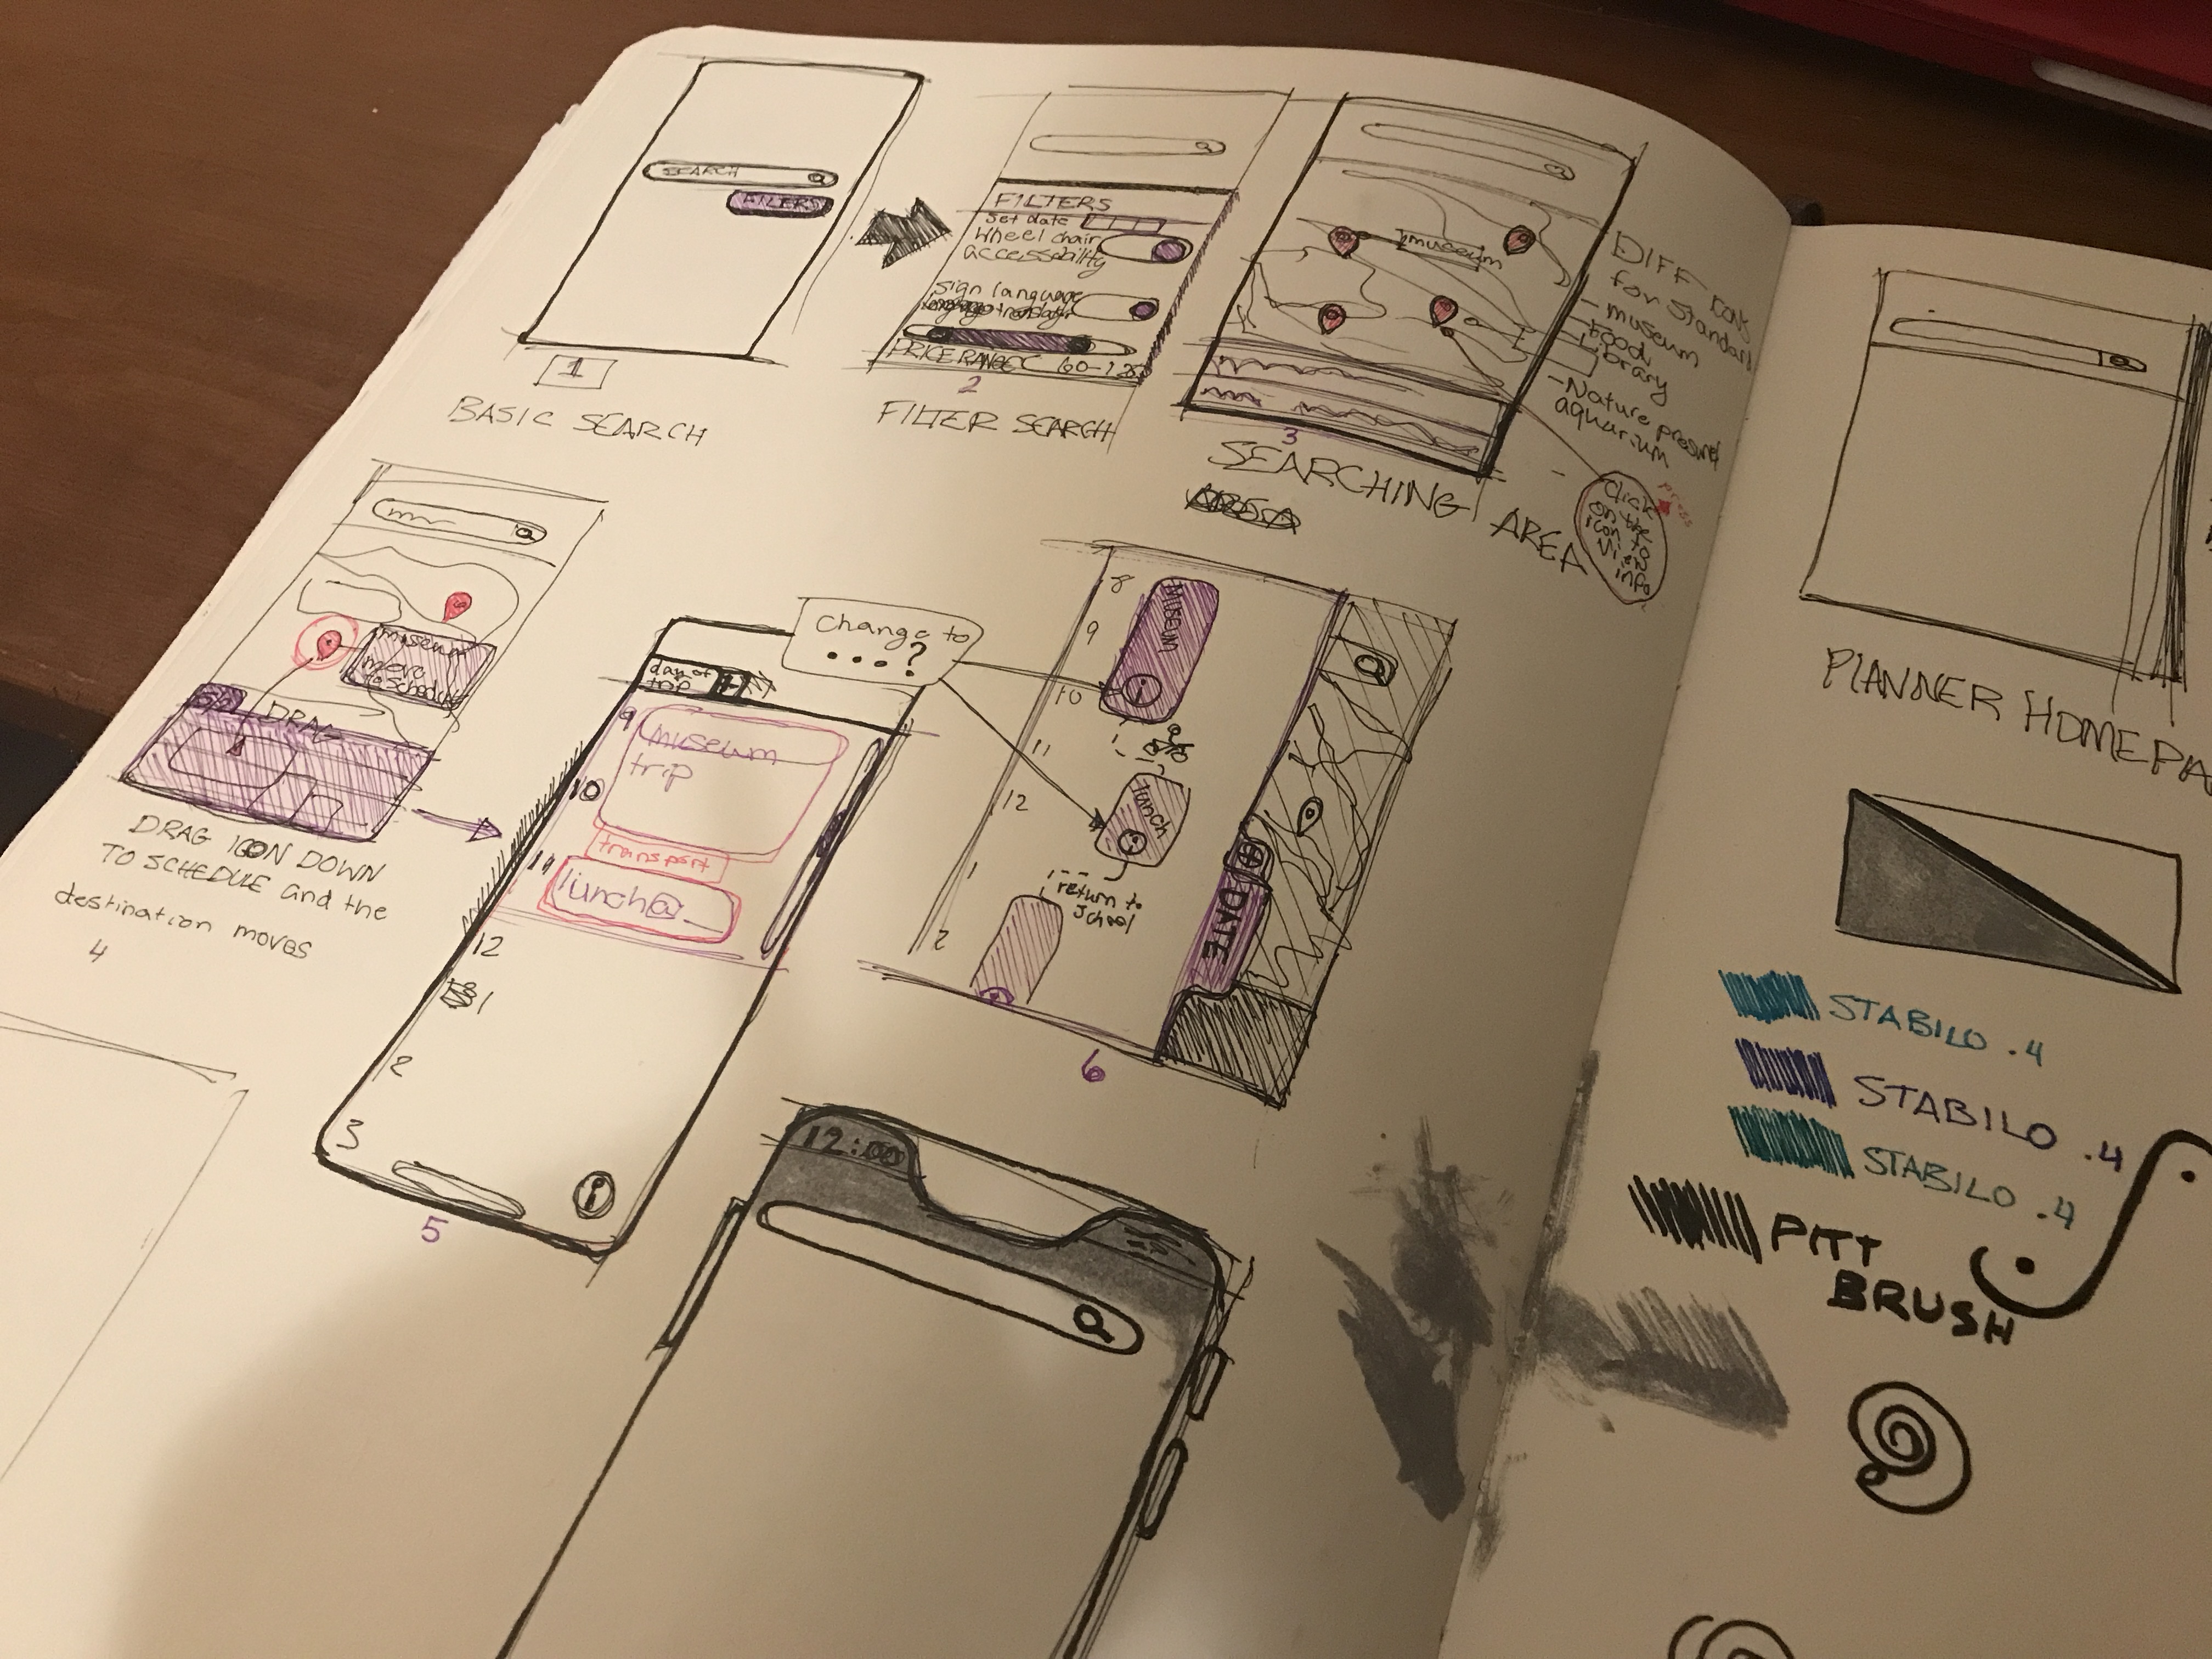 SEARCH
FILTERS
1
BASIC SEARCH
FILTERS
Set date
Wheel chair
accessability
Sign language
PRICERANGE 60-120
2
FILTER SEARCH
museum
3
SEARCHING/ AREA
DIFF ICON
for standard
- museum
- Food
- Library
- Nature preserve
aquarium
Click
on the
icon to
view
info
press
museum
move
to schedule
DRAG
DRAG ICON DOWN
TO SCHEDULE and the
destination moves
4
day of
trip
9
museum
trip
10
transport
11
lunch
12
1
2
3
5
Change to
....?
8
MUSEUM
9
10
11
lunch
12
return to
School
1
2
DATE
6
12:00
PLANNER HOMEPA
STABILO .4
STABILO .4
STABILO .4
PITT
BRUSH